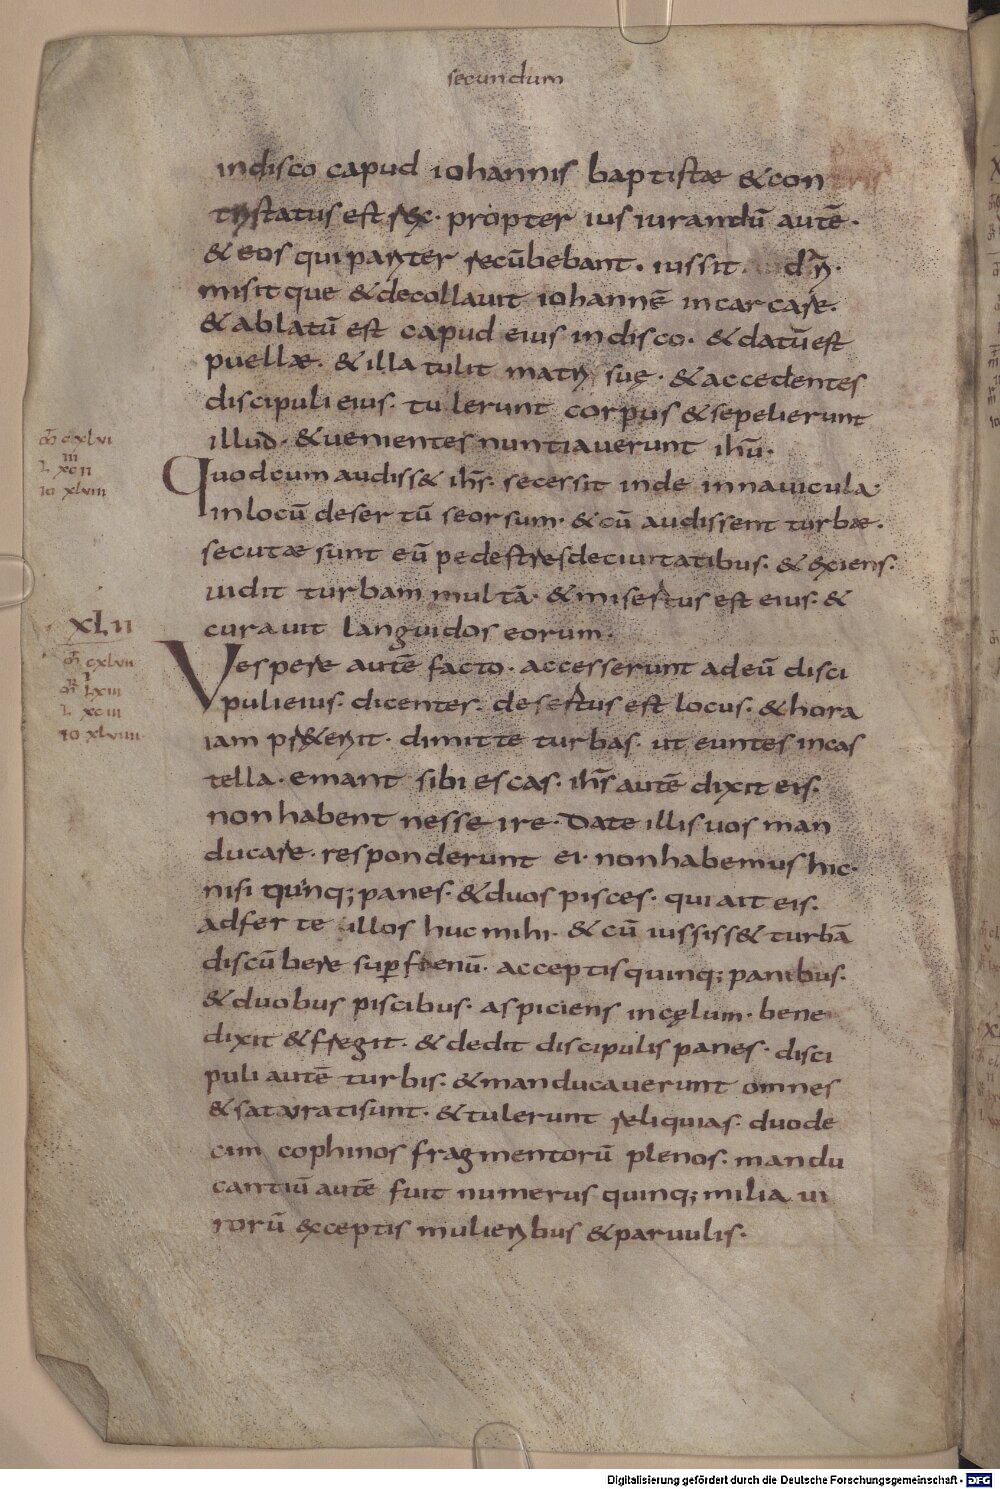 secundum
indisco capud iohannis baptistæ &con
tristatus est rex· propter ius iurandū autē·
& eos qui pariter recūbebant· iussit dari·
misit que &decollauit iohannē incarcare·
& ablatū est capud eius indisco· & datū est
puellæ· & illa tulit matri suę· & accedentes
discipuli eius· tulerunt corpus & sepelierunt
illud· &uenientes nuntiauerunt ihū·
Quodcum audiss& ihs̄· secessit inde innauicula·
inlocū desertū seorsum· & cū audissent turbæ·
secutæ sunt eū pedestres deciuitatibus· & exiens·
uidit turbam multā· & misertus est eius· &
curauit languidos eorum·
Vespere autē facto· accesserunt adeū disci
puli eius· dicentes· desertus est locus· & hora
iam pr&erit· dimitte turbas· ut euntes incas
tella· emant sibi escas· ihs̄ autē dixit eis·
non habent nesse ire· Date illis uos man
ducare· responderunt ei· non habemus hic·
nisi quinq; panes· & duos pisces· qui ait eis·
adferte illos huc mihi· & cū iussiss& turbā
discūbere sup fenū· acceptis quinq; panibus·
& duobus piscibus· aspiciens incęlum· bene
dixit & fregit· & dedit discipulis panes· disci
puli autē turbis· & manducauerunt omnes
& saturati sunt· & tulerunt reliquias· duode
cim cophinos fragmentorū plenos· mandu
cantiū autē fuit numerus quinq; milia ui
rorū exceptis mulieribus & paruulis·
m̄ cxlvi
iii
L xcii
io xlviii
XLII
m̄ cxlvii
i
mr̄ Lxiii
L xciii
io xlviiii
Digitalisierung gefördert durch die Deutsche Forschungsgemeinschaft - DFG